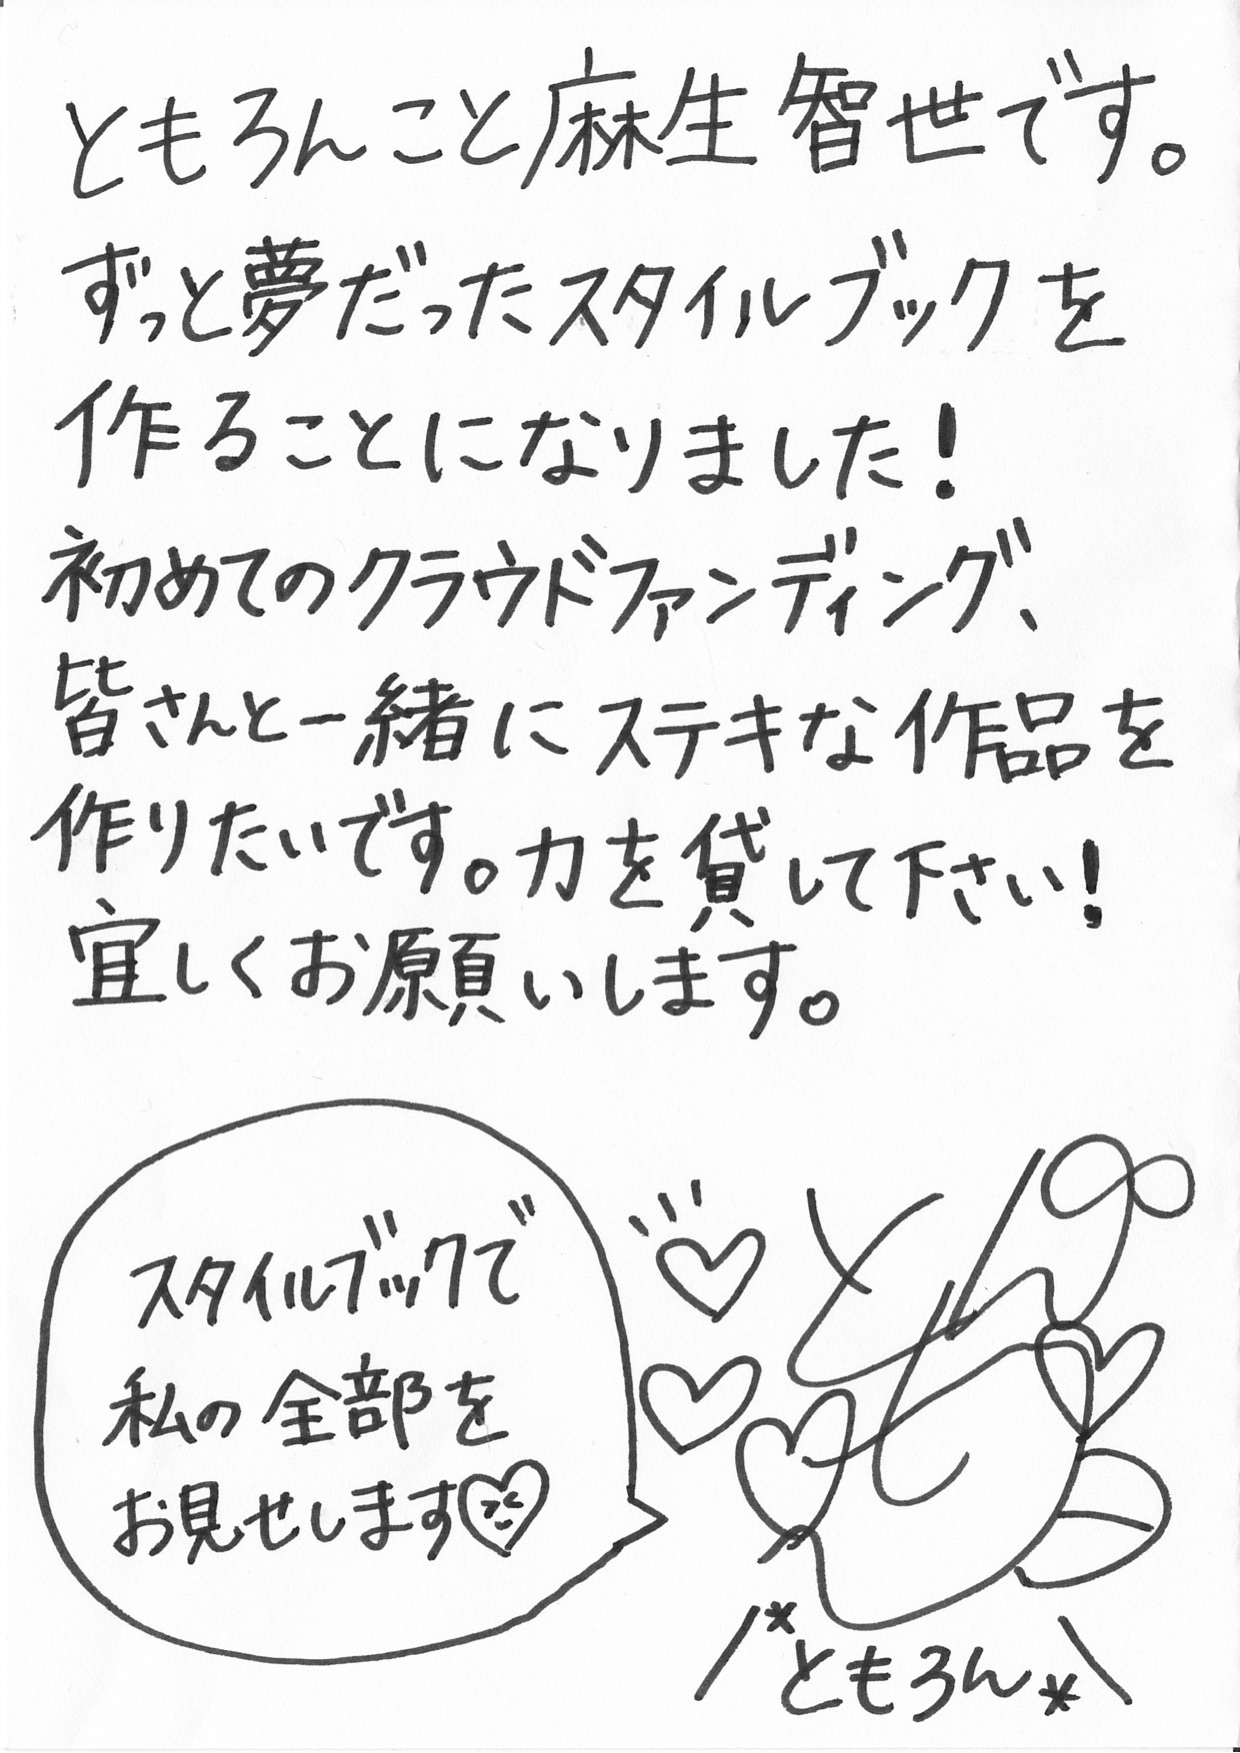 ともろんこと麻生 智世です。
ずっと夢だったスタイルブックを
作ることになりました!
初めてのクラウドファンディング、
皆さんと一緒にステキな作品を
作りたいです。力を貸して下さい!
宜しくお願いします。
スタイルブックで
私の全部を
お見せします
*ともろん*